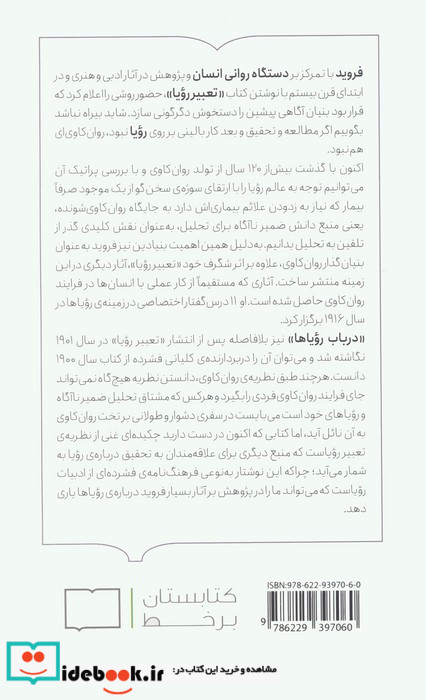 فروید با تمرکز بر دستگاه روانی انسان و پژوهش در آثار ادبی و هنری و در
ابتدای قرن بیستم با نوشتن کتاب «تعبیر رؤیا»، حضور روشی را اعلام کرد که
قرار بود بنیان آگاهی پیشین را دستخوش دگرگونی سازد. شاید بیراه نباشد
بگوییم اگر مطالعه و تحقیق و بعد کار بالینی بر روی رؤیا نبود، روان‌کاوی‌ای
هم نبود.
اکنون با گذشت بیش از ۱۲۰ سال از تولد روان‌کاوی و با بررسی پراتیک آن
می‌توانیم توجه به عالم رؤیا را با ارتقای سوژه‌ی سخن‌گو از یک موجود صرفاً
بیمار که نیاز به زدودن علائم بیماری‌اش دارد به جایگاه روان‌کاوی‌شونده،
یعنی منبع دانش ضمیر ناآگاه برای تحلیل، به‌عنوان نقش کلیدی گذر از
تلقین به تحلیل بدانیم. به‌دلیل همین اهمیت بنیادین نیز فروید به‌عنوان
بنیان‌گذار روان‌کاوی، علاوه بر اثر شگرف خود «تعبیر رؤیا»، آثار دیگری در این
زمینه منتشر ساخت. آثاری که مستقیماً از کار عملی با انسان‌ها در فرایند
روان‌کاوی حاصل شده است. او ۱۱ درس‌گفتار اختصاصی در زمینه‌ی رؤیاها در
سال ۱۹۱۶ برگزار کرد.
«درباب رؤیاها» نیز بلافاصله پس از انتشار «تعبیر رؤیا» در سال ۱۹۰۱
نگاشته شد و می‌توان آن را دربردارنده‌ی کلیاتی فشرده از کتاب سال ۱۹۰۰
دانست. هرچند طبق نظریه‌ی روان‌کاوی، دانستن نظریه هیچ‌گاه نمی‌تواند
جای فرایند روان‌کاوی فردی را بگیرد و هرکس که مشتاق تحلیل ضمیر ناآگاه
و رؤیاهای خود است می‌بایست در سفری دشوار و طولانی بر تخت روان‌کاوی
به آن نائل آید، اما کتابی که اکنون در دست دارید چکیده‌ای غنی از نظریه‌ی
تعبیر رؤیاست که منبع دیگری برای علاقه‌مندان به تحقیق درباره‌ی رؤیا به
شمار می‌آید؛ چراکه این نوشتار به‌نوعی فرهنگ‌نامه‌ی فشرده‌ای از ادبیات
رؤیاست که می‌تواند ما را در پژوهش بر آثار بسیار فروید درباره‌ی رؤیاها یاری
دهد.
کتابستان
برخط
ISBN: 978-622-93970-6-0
9 786229 397060
مشاهده و خرید این کتاب در:
idebook.ir